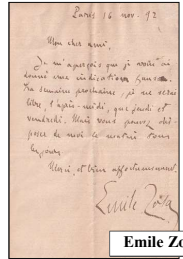 Paris 16 nov. 92
Mon cher ami,
Je m'aperçois que je vous ai
donné une indication fausse.
La semaine prochaine, je ne serai
libre, l'après-midi, que jeudi et
vendredi. Mais vous pouvez dis-
poser de moi le matin tous
les jours.
Merci, et bien affectueusement.
Emile Zola
Emile Zo